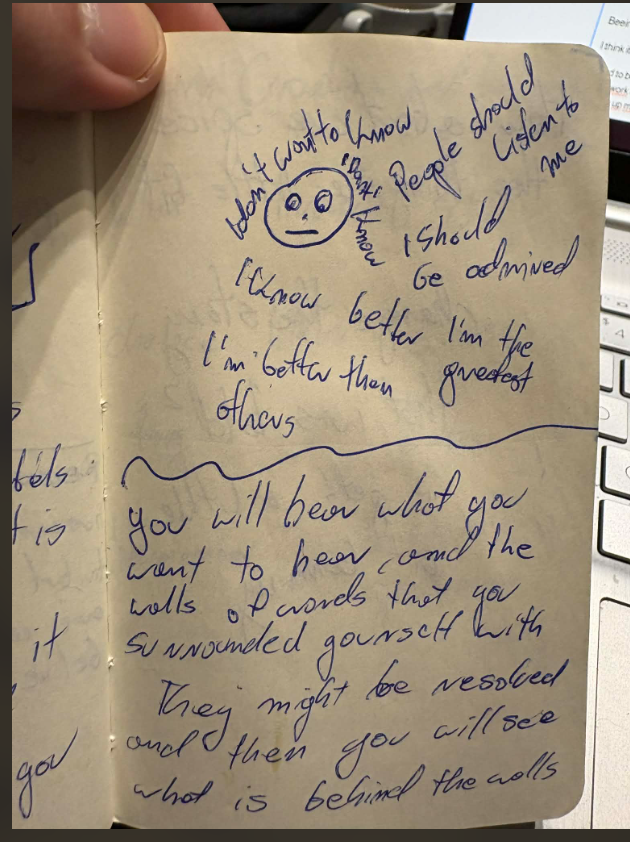 I don't want to know
I don't know
People should
Listen to
me
I should
be admired
I know better I'm the
greatest
I'm better then
others
you will hear what you
want to hear, and the
walls of words that you
surrounded yourself with
They might be resolved
and then you will see
what is behind the walls
s
fels
t is
it
you
Beein
I think it
d to b
work
up m